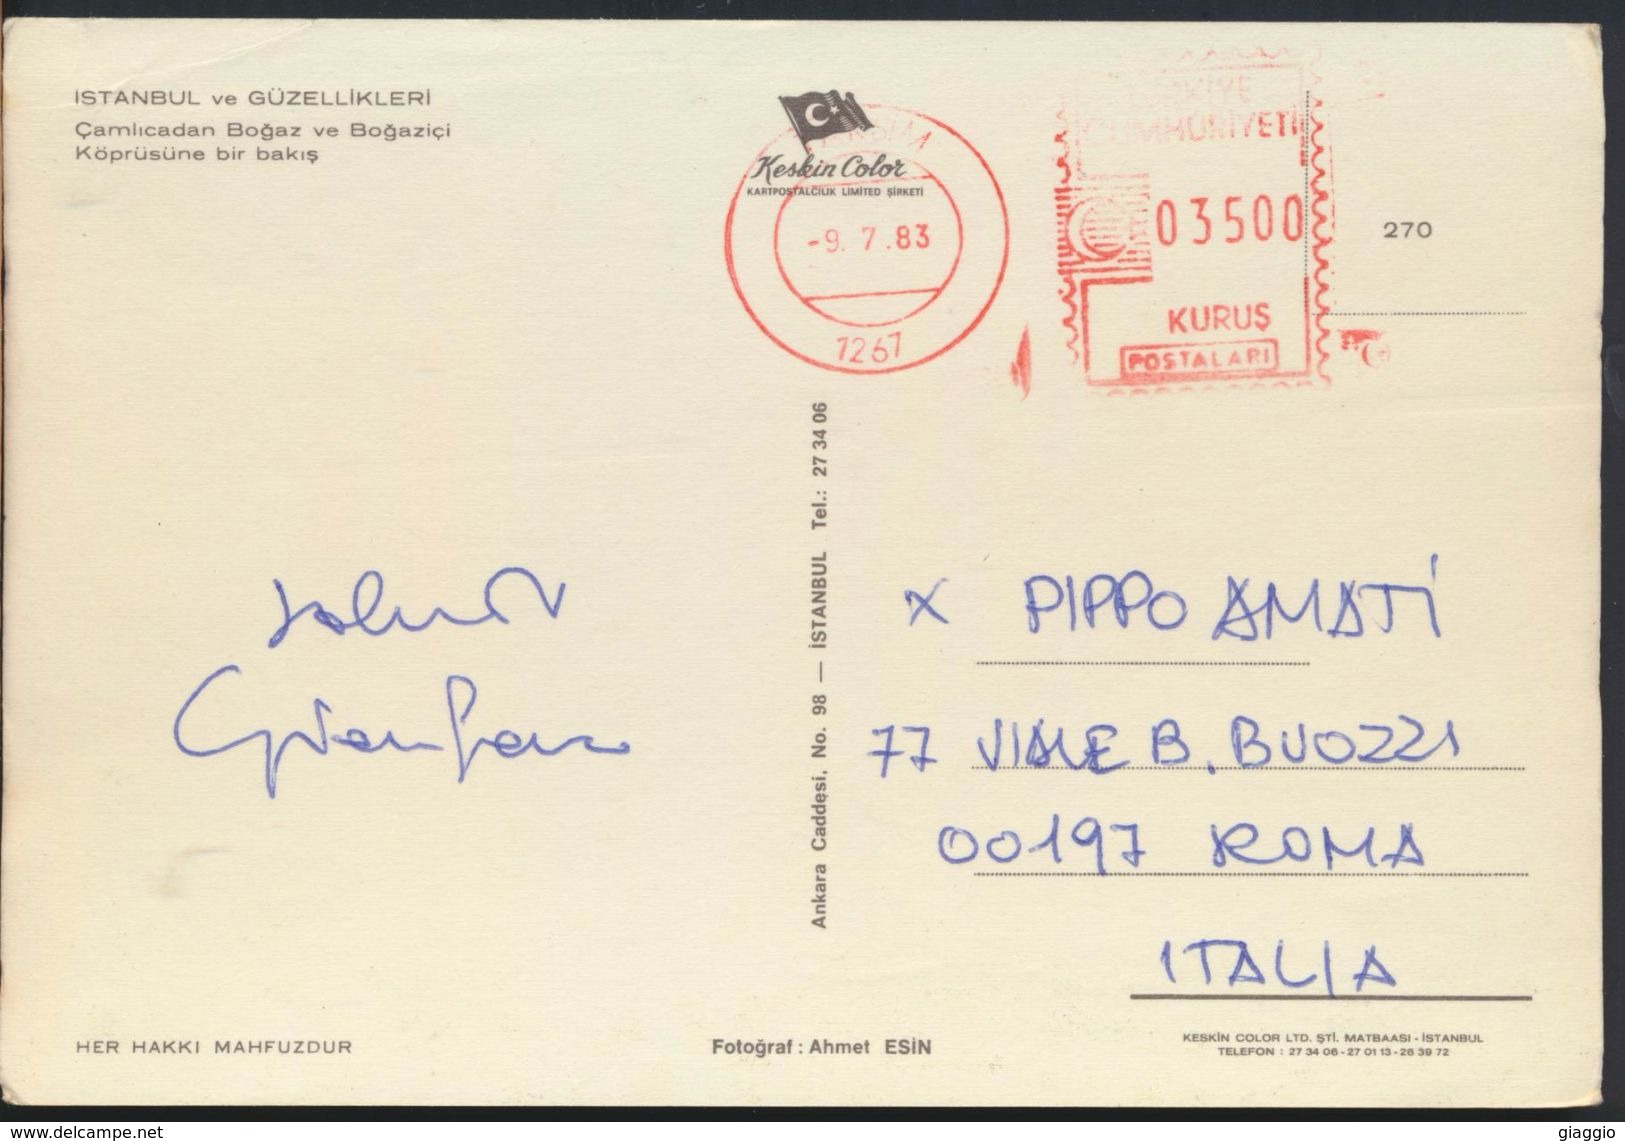 ISTANBUL ve GÜZELLİKLERİ
Çamlıcadan Boğaz ve Boğaziçi
Köprüsüne bir bakış
Keskin Color
KARTPOSTALCILIK LIMITED ŞİRKETİ
-9. 7.83
1261
CUMHURİYETİ
03500
KURUŞ
POSTALARI
270
Ankara Caddesi, No. 98 — İSTANBUL Tel.: 27 34 06
saluti
X PIPPO AMATI
77 VIALE B. BUOZZI
00197 ROMA
ITALIA
HER HAKKI MAHFUZDUR
Fotoğraf : Ahmet ESİN
KESKİN COLOR LTD. ŞTİ. MATBAASI - İSTANBUL
TELEFON : 27 34 06 - 27 01 13 - 26 39 72
www.delcampe.net
giaggio